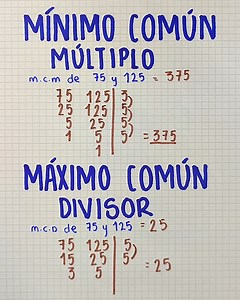 MÍNIMO COMÚN
MÚLTIPLO
m.c.m de 75 y 125 = 375
75 125 3
25 125 5
5 25 5
1 5 5 = 375
1
MÁXIMO COMÚN
DIVISOR
m.c.D de 75 y 125 = 25
75 125 5
15 25 5 = 25
3 5